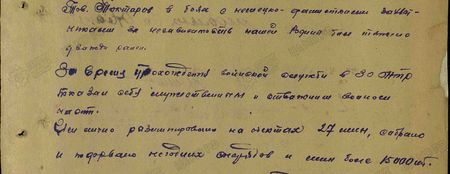 Тов. Тохтаров в боях с немецко-фашистскими захват-
чиками за независимость нашей Родины был тяжело
дважды ранен.
За время прохождения войсковой службы в 30
показал себя мужественным и отважным воином
части.
Им лично разминировано на объектах 27 мин, собрано
и подорвано негодных снарядов и мин более 15000 шт.